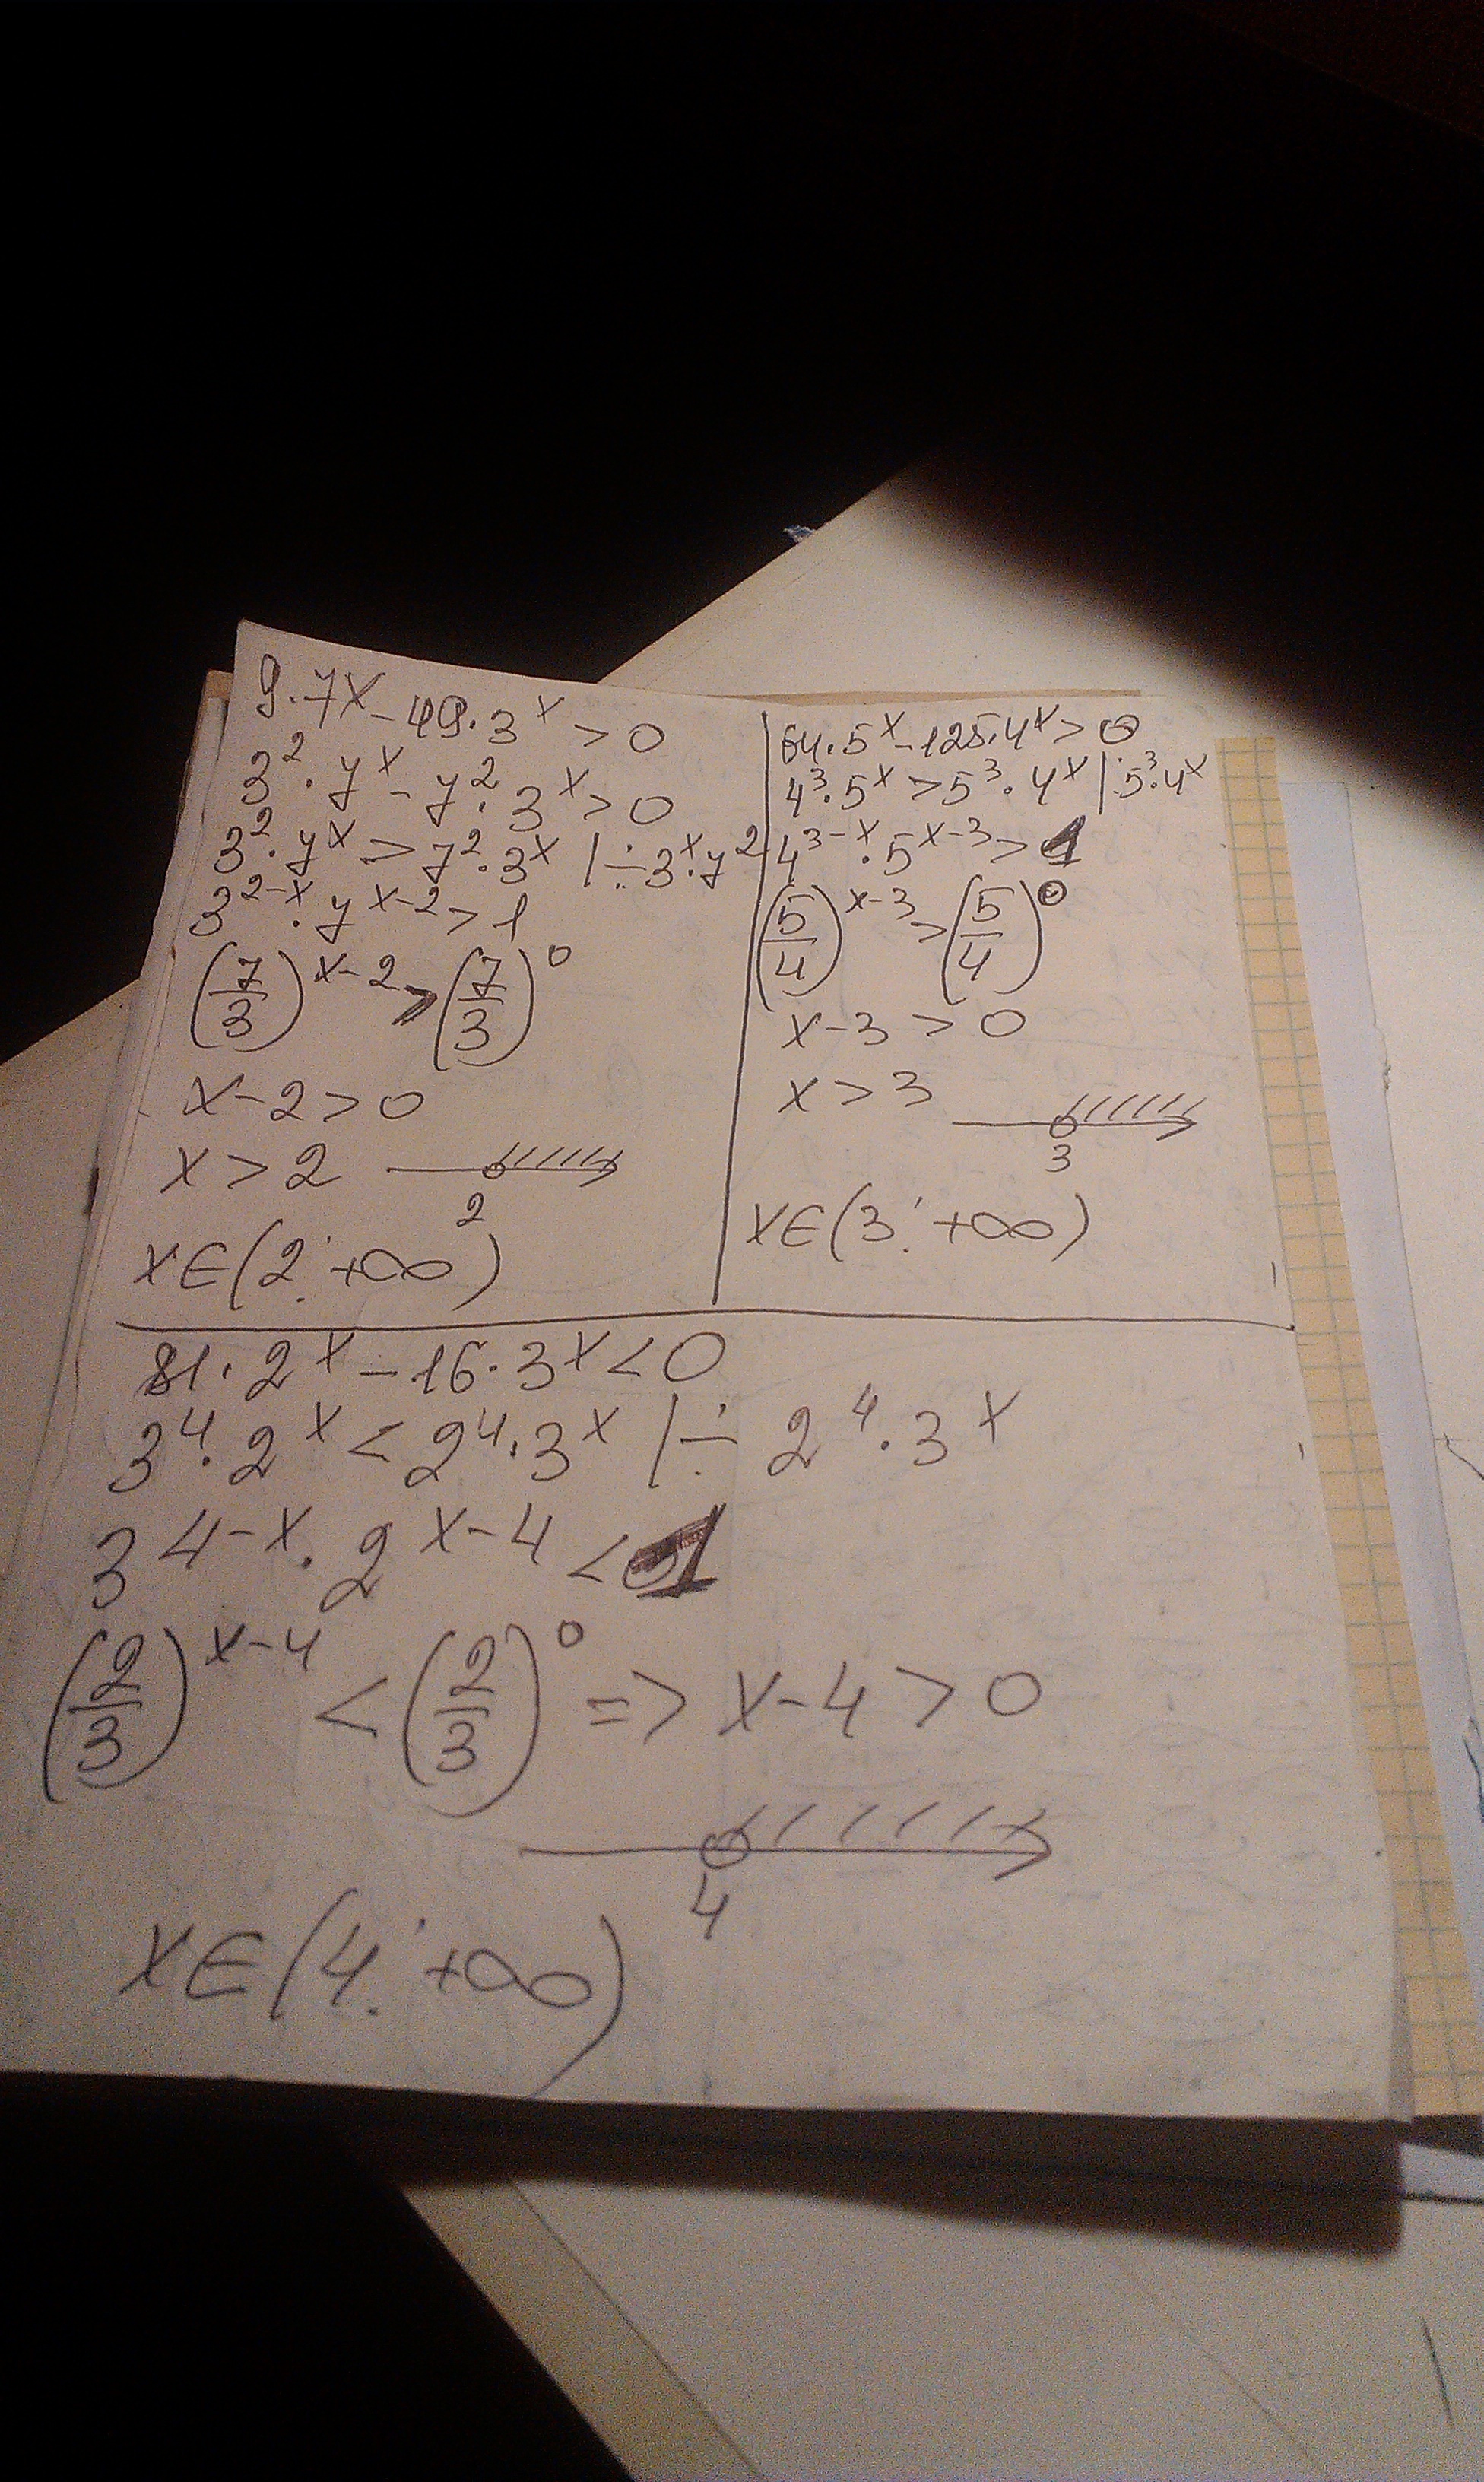 9·7x-49·3^x>0
3^2·y^x-y^2·3^x>0
3^2·y^x>7^2·3^x |÷3^x·y^2
3^{2-x}·y^{x-2}>1
(7/3)^{x-2}>(7/3)^0
x-2>0
x>2
2
x∈(2;+∞)
64·5^x-125·4^x>0
4^3·5^x>5^3·4^x |:5^3·4^x
4^{3-x}·5^{x-3}>1
(5/4)^{x-3}>(5/4)^0
x-3>0
x>3
3
x∈(3;+∞)
81·2^x-16·3^x<0
3^4·2^x<2^4·3^x |÷2^4·3^x
3^{4-x}·2^{x-4}<1
(2/3)^{x-4}<(2/3)^0=>x-4>0
4
x∈(4;+∞)